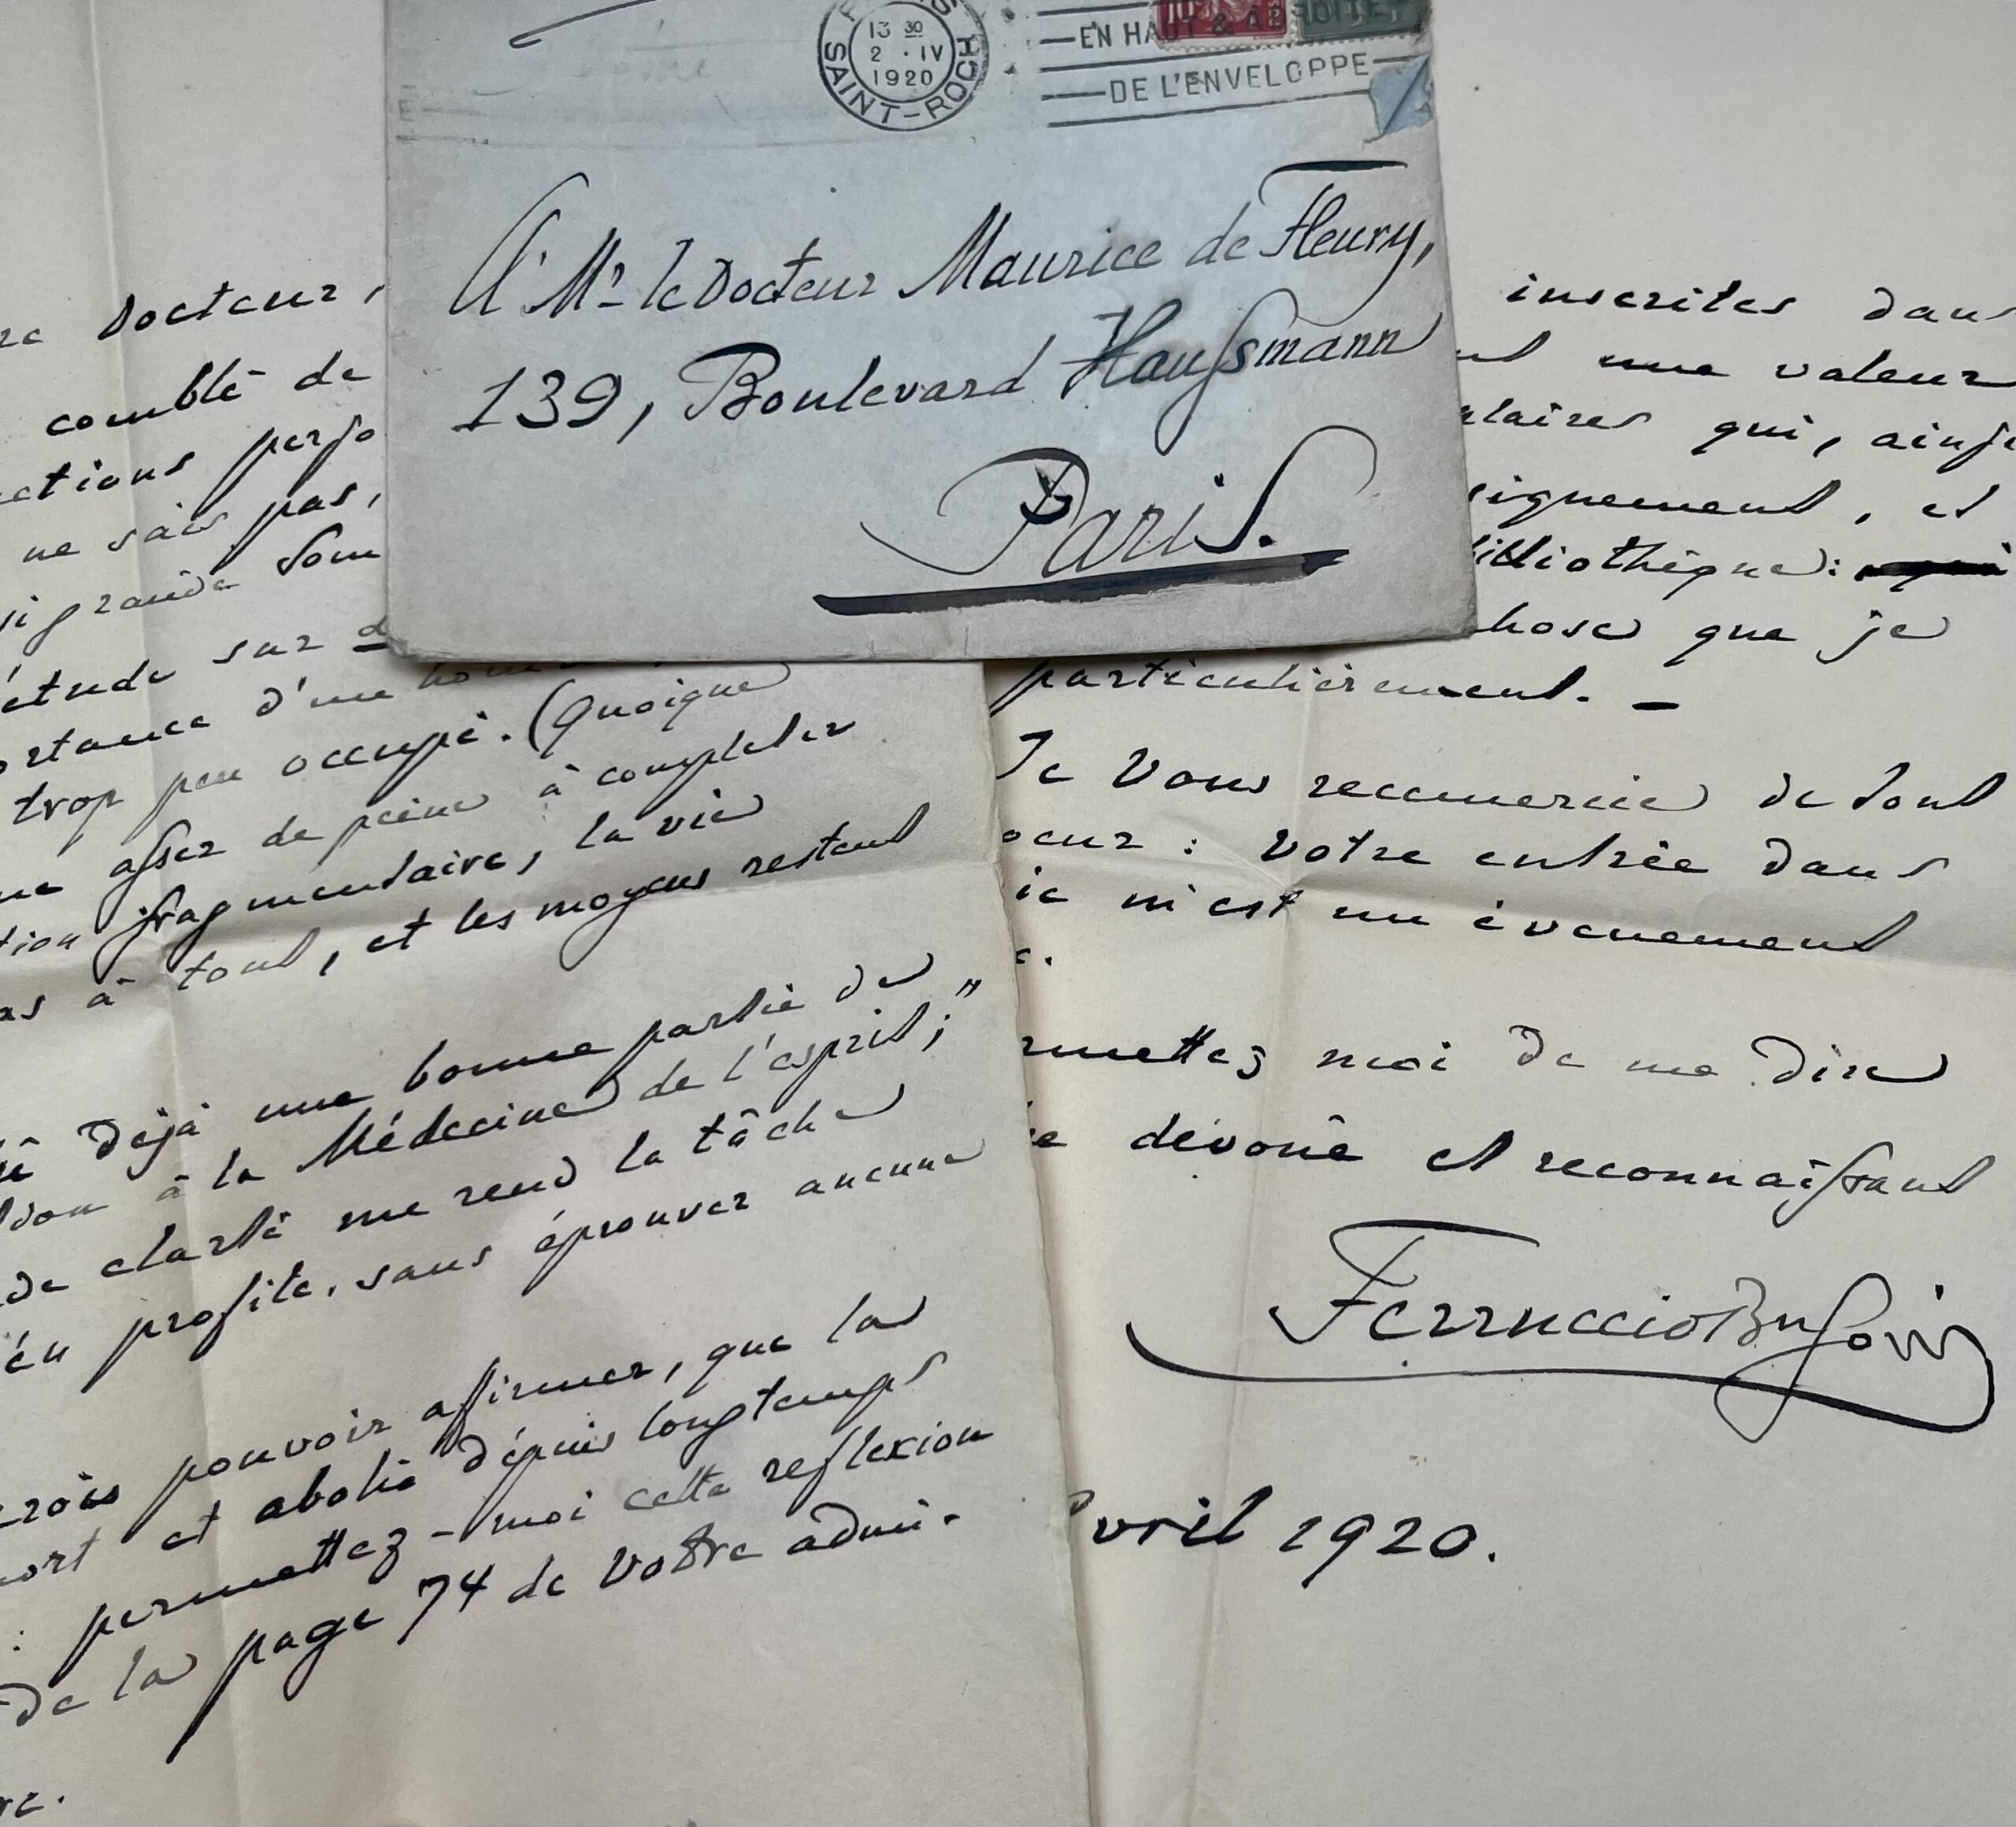 13 30
2 · IV
1920
SAINT-ROCH
EN HAUT & À DROITE
DE L'ENVELOPPE
A Mr le Docteur Maurice de Fleury,
139, Boulevard Haussmann
Paris.
Docteur,
comblé de
ctions perso
ne sais pas,
si grande som
'étude sur
ortance d'un
trop peu occupé. (Quoique
assez de peine à completer
tion fragmentaire, la vie
as à tout, et les moyens restent
déjà une bonne partie de
à la Médecine de l'esprit;"
de clarté me rend la tâche
j'en profite, sans éprouver aucune
crois pouvoir affirmer, que la
mort est abolie dépuis longtemps
: permettez-moi cette reflexion
de la page 74 de Votre admi-
inscrites dans
une valeur
qui, ainsi
signement, et
bibliothèque:
chose que je
particulièrement. —
Je Vous remercie de tout
coeur : Votre entrée dans
m'est un évenement
ermettez moi de me dire
dévoué et reconnaissant
Ferruccio Busoni
Avril 1920.